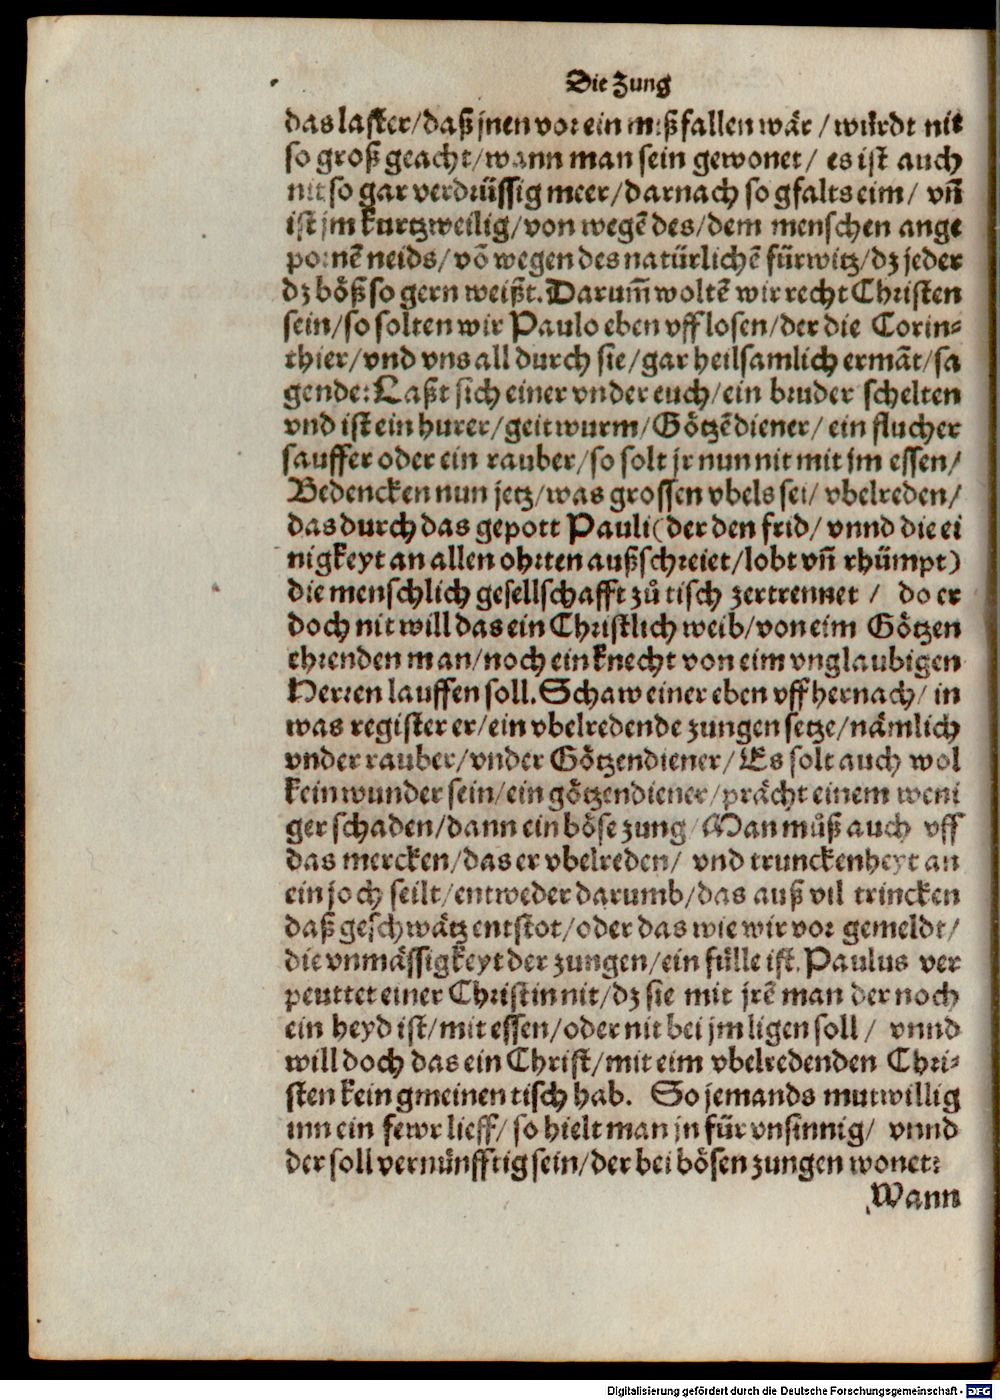 Die Zung
das laster/daß jnen vor ein mißfallen wår/ würdt nit
so groß geacht/wann man sein gewonet/ es ist auch
nit so gar verdrüssig meer/darnach so gfalts eim/ vn̄
ist jm kurtzweilig/von wegē des/dem menschen ange
pornē neids/võ wegen des natürlichē fürwitz/dz jeder
dz bōß so gern weißt. Darum̄ woltē wir recht Christen
sein/so solten wir Paulo eben vff losen/der die Corin-
thier/vnd vns all durch sie/gar heilsamlich ermãt/sa
gende: Laßt sich einer vnder euch/ein bruder schelten
vnd ist ein hurer/geitwurm/Götzēdiener/ein flucher
sauffer oder ein rauber/so solt jr nun nit mit jm essen/
Bedencken nun jetz/was grossen vbels sei/ vbelreden/
das durch das gepott Pauli(der den frid/ vnnd die ei
nigkeyt an allen ohrten außschreiet/lobt vn̄ rhümpt)
die menschlich gesellschafft zů tisch zertrennet/ do er
doch nit will das ein Christlich weib/von eim Götzen
ehrenden man/noch ein knecht von eim vnglaubigen
Herren lauffen soll. Schaw einer eben vff hernach/ in
was register er/ein vbelredende zungen setze/nämlich
vnder rauber/vnder Götzendiener/ Es solt auch wol
kein wunder sein/ein götzendiener/prächt einem weni
ger schaden/dann ein böse zung/ Man můß auch vff
das mercken/das er vbelreden/ vnd trunckenheyt an
ein joch seilt/entweder darumb/das auß vil trincken
daß geschwätz entstot/oder das wie wir vor gemeldt/
die vnmässigkeyt der zungen/ein fülle ist. Paulus ver
peuttet einer Christin nit/dz sie mit jrē man der noch
ein heyd ist/mit essen/oder nit bei jm ligen soll/ vnnd
will doch das ein Christ/mit eim vbelredenden Chri-
sten kein gmeinen tisch hab. So jemands mutwillig
inn ein fewr lieff/so hielt man jn für vnsinnig/ vnnd
der soll vernünfftig sein/der bei bösen zungen wonet:
Wann
Digitalisierung gefördert durch die Deutsche Forschungsgemeinschaft - DFG